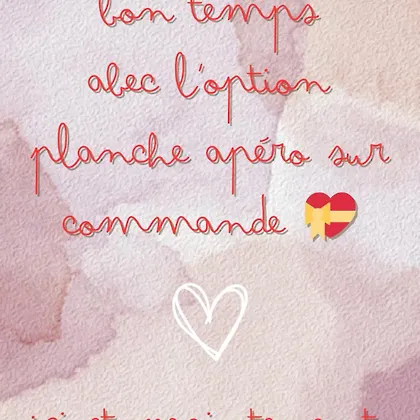 bon temps
abec l'option
planche apéro sur
commande 💝